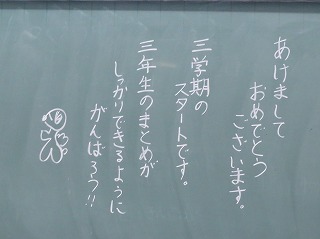 あけまして
おめでとう
ございます。
三学期の
スタートです。
三年生のまとめが
しっかりできるように
がんばろう!!